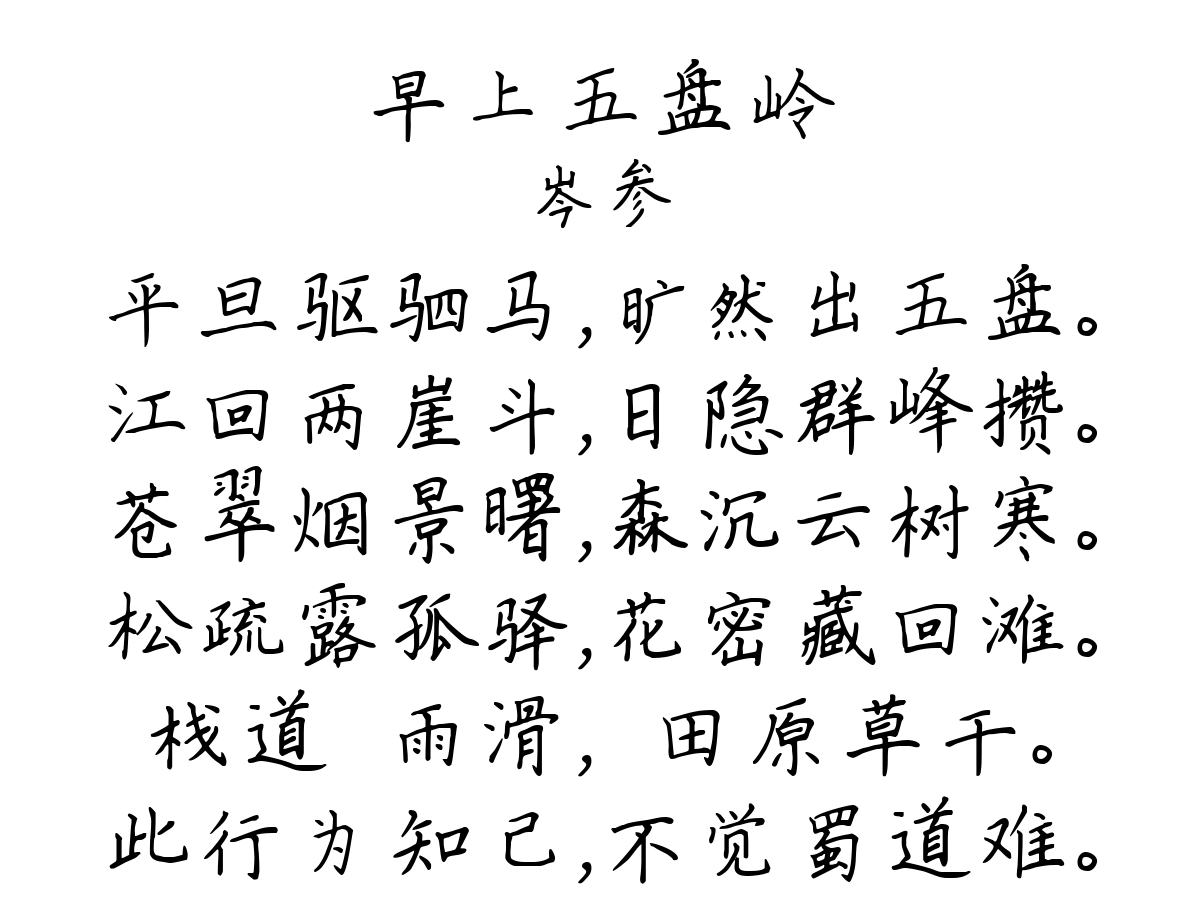 早上五盘岭
岑参
平旦驱驷马,旷然出五盘。
江回两崖斗,日隐群峰攒。
苍翠烟景曙,森沉云树寒。
松疏露孤驿,花密藏回滩。
栈道 雨滑, 田原草干。
此行为知己,不觉蜀道难。